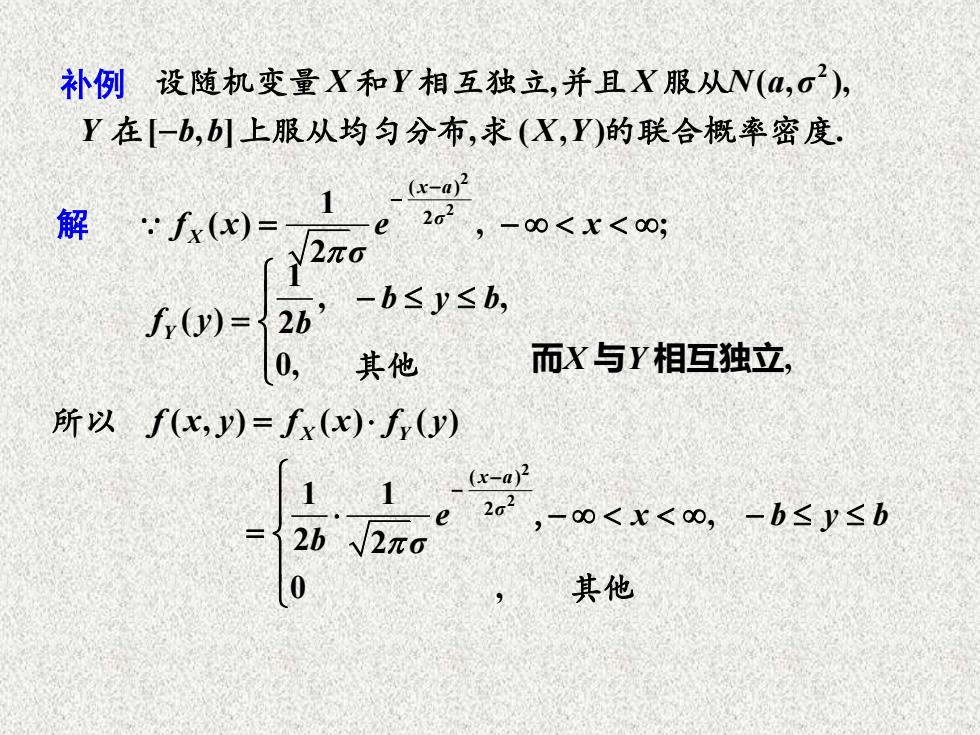 补例 设随机变量 X 和 Y 相互独立,并且 X 服从N(a,σ²),
Y 在[−b,b]上服从均匀分布,求(X,Y)的联合概率密度.
解 ∵ f_X(x) = \frac{1}{\sqrt{2π}σ} e^{-\frac{(x−a)^2}{2σ^2}}, −∞ < x < ∞;
f_Y(y) = \begin{cases} \frac{1}{2b}, & −b ≤ y ≤ b, \\ 0, & 其他 \end{cases}
而X 与Y 相互独立,
所以 f(x, y) = f_X(x)· f_Y(y)
= \begin{cases} \frac{1}{2b} · \frac{1}{\sqrt{2π}σ} e^{-\frac{(x−a)^2}{2σ^2}}, −∞ < x < ∞, −b ≤ y ≤ b \\ 0 , 其他 \end{cases}